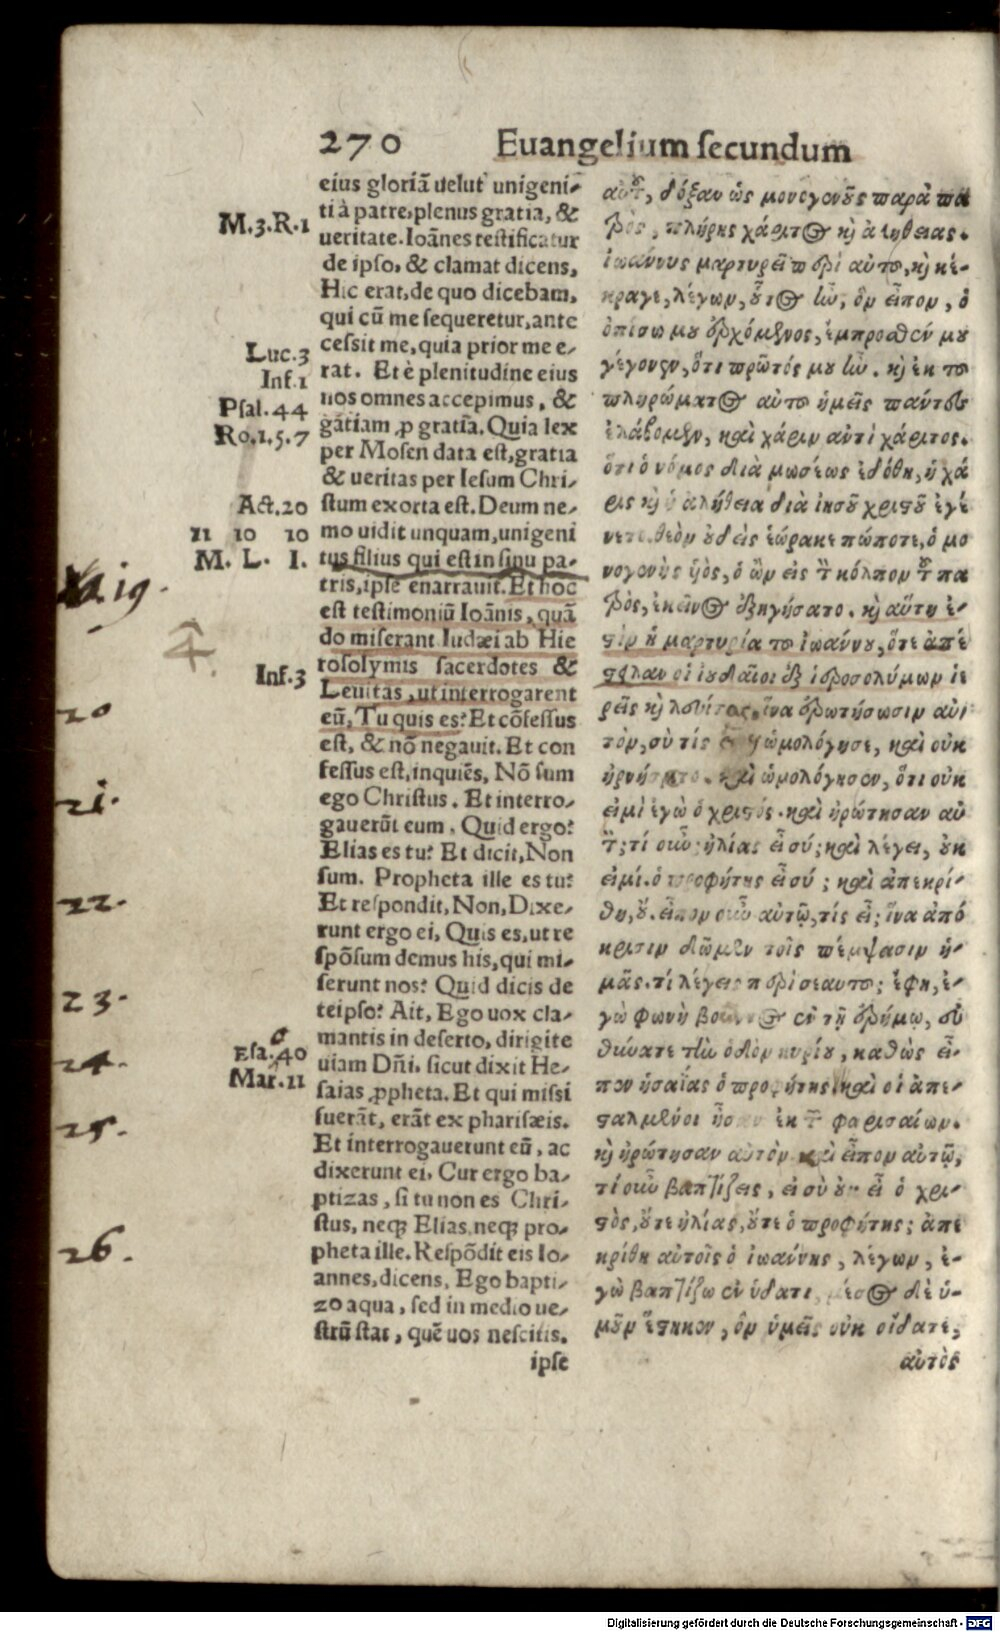 270 Euangelium ſecundum
eius gloriā uelut unigeni-
ti à patre, plenus gratia, &
ueritate. Ioānes teſtificatur
de ipſo, & clamat dicens,
Hic erat, de quo dicebam,
qui cū me ſequeretur, ante
ceſſit me, quia prior me e-
rat. Et è plenitudine eius
nos omnes accepimus, &
gātiam ꝓ gratīa. Quia lex
per Moſen data eſt, gratia
& ueritas per Ieſum Chri-
ſtum exorta eſt. Deum ne-
mo uidit unquam, unigeni
tus filius qui eſt in ſinu pa-
tris, ipſe enarrauit. Et hoc
eſt teſtimoniū Ioānis, quā
do miſerant Iudæi ab Hie
roſolymis ſacerdotes &
Leuitas, ut interrogarent
eū, Tu quis es? Et cōfeſſus
eſt, & nō negauit. Et con
feſſus eſt, inquiēs, Nō ſum
ego Chriſtus. Et interro-
gauerūt eum, Quid ergo?
Elias es tu? Et dicit, Non
ſum. Propheta ille es tu?
Et reſpondit, Non, Dixe-
runt ergo ei, Quis es, ut re
ſpōſum demus his, qui mi-
ſerunt nos? Quid dicis de
teipſo? Ait, Ego uox cla-
mantis in deſerto, dirigite
uiam Dn̄i, ſicut dixit He-
ſaias ꝓpheta. Et qui miſſi
fuerāt, erāt ex phariſæis.
Et interrogauerunt eū, ac
dixerunt ei, Cur ergo ba-
ptizas, ſi tu non es Chri-
ſtus, neqꝫ Elias, neqꝫ pro-
pheta ille. Reſpōdit eis Io-
annes, dicens, Ego bapti-
zo aqua, ſed in medio ue-
ſtrū ſtat, quē uos neſcitis.
ipſe
M.3.R.1
Luc.3
Inf.1
Pſal.44
Ro.1.5.7
Act.20
11 10 10
M. L. I.
19.
Inf.3
20
21.
22.
23.
Eſa.40
24.
Mar.11
25.
26.
αὐτοῦ, δόξαν ὡς μονογενοῦς παρὰ πα
τρὸς, πλήρης χάριτος καὶ ἀληθείας.
ἰωάννης μαρτυρεῖ περὶ αὐτοῦ, καὶ κέ-
κραγε, λέγων, οὗτος ἦν, ὃν εἶπον, ὁ
ὀπίσω μου ἐρχόμενος, ἔμπροσθέν μου
γέγονεν, ὅτι πρῶτός μου ἦν. καὶ ἐκ τοῦ
πληρώματος αὐτοῦ ἡμεῖς πάντες
ἐλάβομεν, καὶ χάριν αντὶ χάριτος.
ὅτι ὁ νόμος διὰ μωσέως ἐδόθη, ἡ χά
ρις καὶ ἡ αλήθεια διὰ ἰησοῦ χριστοῦ ἐγέ
νετο. θεὸν οὐδεὶς ἑώρακε πώποτε, ὁ μο
νογενὴς ὑὸς, ὁ ὢν εἰς τὸν κόλπον τοῦ πα
τρὸς, ἐκεῖνος ἐξηγήσατο. καὶ αὕτη ἐ-
στὶν ἡ μαρτυρία τοῦ ἰωάννου, ὅτε ἀπέ
στειλαν οἱ ἰουδαῖοι ἐξ ἱεροσολύμων ἱε
ρεῖς καὶ λευίτας, ἵνα ἐρωτήσωσιν αὐ
τὸν, σὺ τίς ὡμολόγησε, καὶ οὐκ
ἠρνήσατο. καὶ ὡμολόγησεν, ὅτι οὐκ
εἰμὶ ἐγὼ ὁ χριστός. καὶ ἠρώτησαν αὐ
τὸν; τί οὖν; ἠλίας εἶ σύ; καὶ λέγει, οὐκ
εἰμί. ὁ προφήτης εἶ σύ; καὶ ἀπεκρί-
θη, οὔ. εἶπον οὖν αὐτῷ, τίς εἶ; ἵνα ἀπό
κρισιν δῶμεν τοῖς πέμψασιν ἡ-
μᾶς. τί λέγεις περὶ σεαυτοῦ; ἔφη, ἐ-
γὼ φωνὴ βοῶντος ἐν τῇ ἐρήμῳ, εὐ
θύνατε τὴν ὁδὸν κυρίου, καθὼς εἶ-
πεν ἡσαΐας ὁ προφήτης. καὶ οἱ ἀπε-
σταλμένοι ἦσαν ἐκ τῶν φαρισαίων.
καὶ ἠρώτησαν αὐτὸν καὶ εἶπον αὐτῷ,
τί οὖν βαπτίζεις, εἰ σὺ οὐκ εἶ ὁ χρι-
στὸς, οὔτε ἠλίας, οὔτε ὁ προφήτης; ἀπε
κρίθη αὐτοῖς ὁ ἰωάννης, λέγων, ἐ-
γὼ βαπτίζω ἐν ὕδατι, μέσος δὲ ὑ-
μῶν ἕστηκεν, ὃν ὑμεῖς οὐκ οἴδατε,
αὐτός
Digitalisierung gefördert durch die Deutsche Forschungsgemeinschaft - DFG